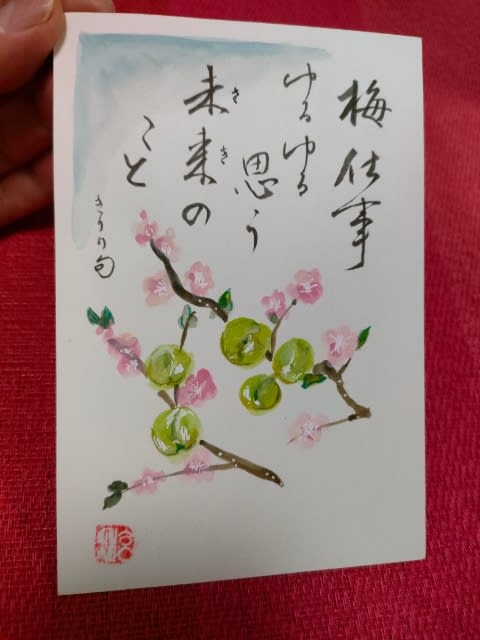 梅仕事
ゆるゆる
思う
未来の
さき
こと
きうり句